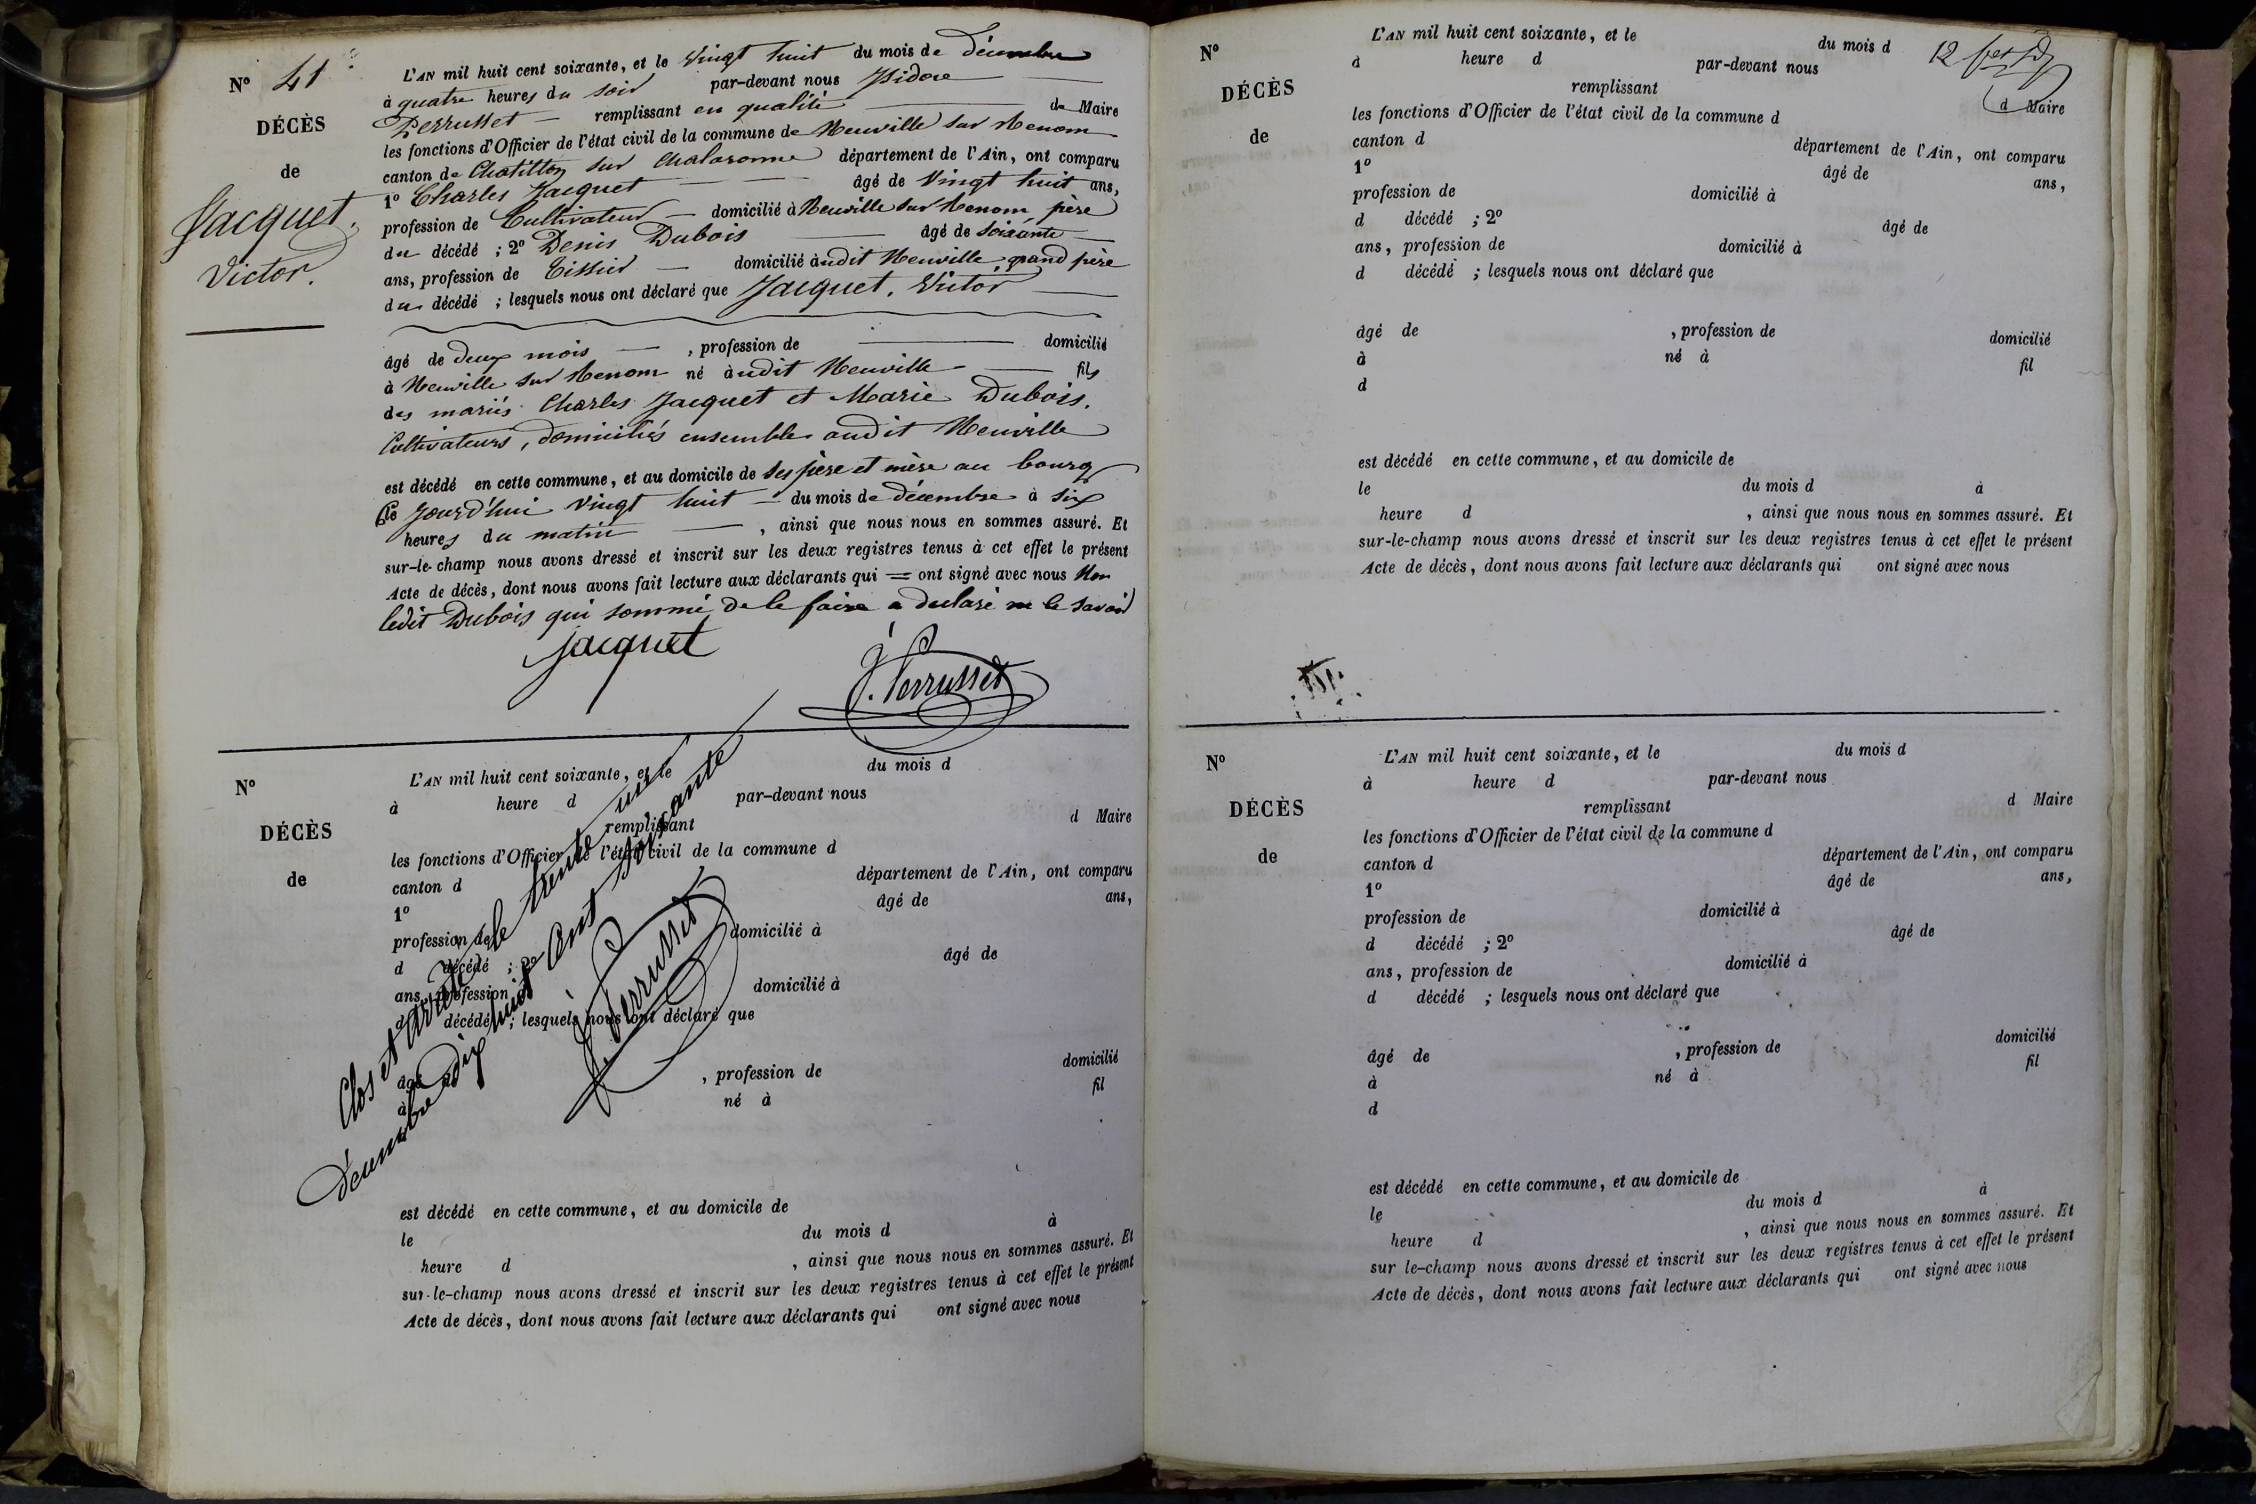 N° 41
DÉCÈS
de
Jacquet,
Victor.
L'AN mil huit cent soixante, et le Vingt huit du mois de décembre
à quatre heures du soir par-devant nous Isidore
Perrusset remplissant en qualité de Maire
les fonctions d'Officier de l'état civil de la commune de Neuville sur Renom
canton de Chatillon sur Chalaronne département de l'Ain, ont comparu
1° Charles Jacquet âgé de Vingt huit ans,
profession de Cultivateur domicilié à Neuville sur Renom père
du décédé ; 2° Denis Dubois âgé de soixante
ans, profession de Tissier domicilié audit Neuville grand père
du décédé ; lesquels nous ont déclaré que Jacquet, Victor
âgé de deux mois , profession de domicilié
à Neuville sur Renom né audit Neuville fils
des mariés Charles Jacquet et Marie Dubois,
Cultivateurs, domiciliés ensemble audit Neuville
est décédé en cette commune, et au domicile de ses père et mère au bourg
le jourd'hui vingt huit du mois de décembre à six
heures du matin , ainsi que nous nous en sommes assuré. Et
sur-le-champ nous avons dressé et inscrit sur les deux registres tenus à cet effet le présent
Acte de décès, dont nous avons fait lecture aux déclarants qui ont signé avec nous Non
ledit Dubois qui sommé de le faire a declaré ne le savoir
Jacquet
J. Perrusset
N°
DÉCÈS
de
L'AN mil huit cent soixante, et le du mois d
à heure d par-devant nous
remplissant d Maire
les fonctions d'Officier de l'état civil de la commune d
canton d département de l'Ain, ont comparu
1° âgé de ans,
profession de domicilié à
d décédé ; 2° âgé de
ans, profession d domicilié à
d décédé ; lesquels nous ont déclaré que
âgé de , profession de domicilié
à né à fil
Clos et arrêté le trente un
décembre dix huit cent soixante
J. Perrusset
est décédé en cette commune, et au domicile de
le du mois d à
heure d , ainsi que nous nous en sommes assuré. Et
sur-le-champ nous avons dressé et inscrit sur les deux registres tenus à cet effet le présent
Acte de décès, dont nous avons fait lecture aux déclarants qui ont signé avec nous
12
N°
DÉCÈS
de
L'AN mil huit cent soixante, et le du mois d
à heure d par-devant nous
remplissant d Maire
les fonctions d'Officier de l'état civil de la commune d
canton d département de l'Ain, ont comparu
1° âgé de ans,
profession de domicilié à
d décédé ; 2° âgé de
ans, profession de domicilié à
d décédé ; lesquels nous ont déclaré que
âgé de , profession de domicilié
à né à fil
d
est décédé en cette commune, et au domicile de
le du mois d à
heure d , ainsi que nous nous en sommes assuré. Et
sur-le-champ nous avons dressé et inscrit sur les deux registres tenus à cet effet le présent
Acte de décès, dont nous avons fait lecture aux déclarants qui ont signé avec nous
N°
DÉCÈS
de
L'AN mil huit cent soixante, et le du mois d
à heure d par-devant nous
remplissant d Maire
les fonctions d'Officier de l'état civil de la commune d
canton d département de l'Ain, ont comparu
1° âgé de ans,
profession de domicilié à
d décédé ; 2° âgé de
ans, profession de domicilié à
d décédé ; lesquels nous ont déclaré que
âgé de , profession de domicilié
à né à fil
d
est décédé en cette commune, et au domicile de
le du mois d à
heure d , ainsi que nous nous en sommes assuré. Et
sur le-champ nous avons dressé et inscrit sur les deux registres tenus à cet effet le présent
Acte de décès, dont nous avons fait lecture aux déclarants qui ont signé avec nous